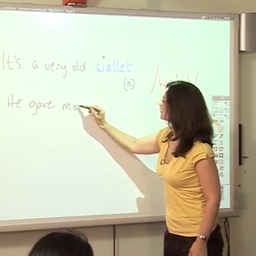 It's a very old wallet.
(n)
He gave m